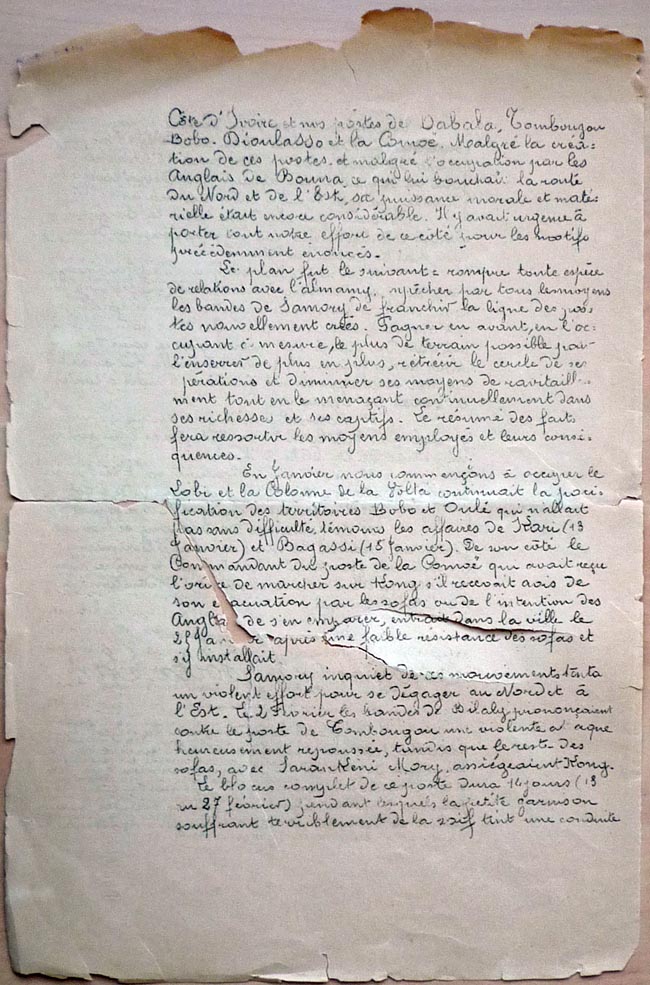 Côte d'Ivoire et nos postes de Dabala, Tombougou
Bobo-Dioulasso et la Comoé. Malgré la créa-
tion de ces postes, et malgré l'occupation par les
Anglais de Bouna, ce qui lui bouchait la route
du Nord et de l'Est, sa puissance morale et maté-
rielle était encore considérable. Il y avait urgence à
porter tout notre effort de ce côté pour les motifs
précédemment énoncés.
Le plan fut le suivant = rompre toute espèce
de relations avec l'almamy, mpêcher par tous les moyens
les bandes de Samory de franchir la ligne des pos-
tes nouvellement créés. Gagner en avant, en l'oc-
cupant à mesure, le plus de terrain possible pour
l'enserrer de plus en plus, rétrécir le cercle de ses
opérations et diminuer ses moyens de ravitaille-
ment tout en le menaçant continuellement dans
ses richesses et ses captifs. Le résumé des faits
fera ressortir les moyens employés et leurs consé-
quences.
En Janvier nous commençons à occuper le
Lobi et la Colonne de la Volta continuait la paci-
fication des territoires Bobo et Oulé qui n'allait
pas sans difficulté, témoins les affaires de Kari (13
Janvier) et Bagassi (15 Janvier). De son côté le
Commandant du poste de la Comoé qui avait reçu
l'ordre de marcher sur Kong s'il recevait avis de
son évacuation par les sofas ou de l'intention des
Anglais de s'en emparer, entrait dans la ville le
25 Janvier après une faible résistance des sofas et
s'y installait.
Samory inquiet de ces mouvements tenta
un violent effort pour se dégager au Nord et à
l'Est. Le 2 Février les bandes de Bilaly prononçaient
contre le poste de Tombougou une violente attaque
heureusement repoussée, tandis que le reste des
sofas, avec Sarankéni Mory, assiégeaient Kong.
Le blocus complet de ce poste dura 14 jours (13
au 27 février) pendant lesquels la petite garnison
souffrant terriblement de la soif tint une conduite